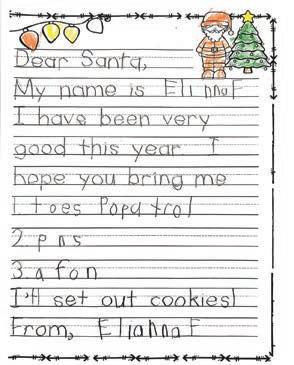 Dear Santa,
My name is Elianna F
I have been very
good this year. I
hope you bring me
1. toes Popatrol
2. pns
3. a fon
I'll set out cookies!
From, Elianna F